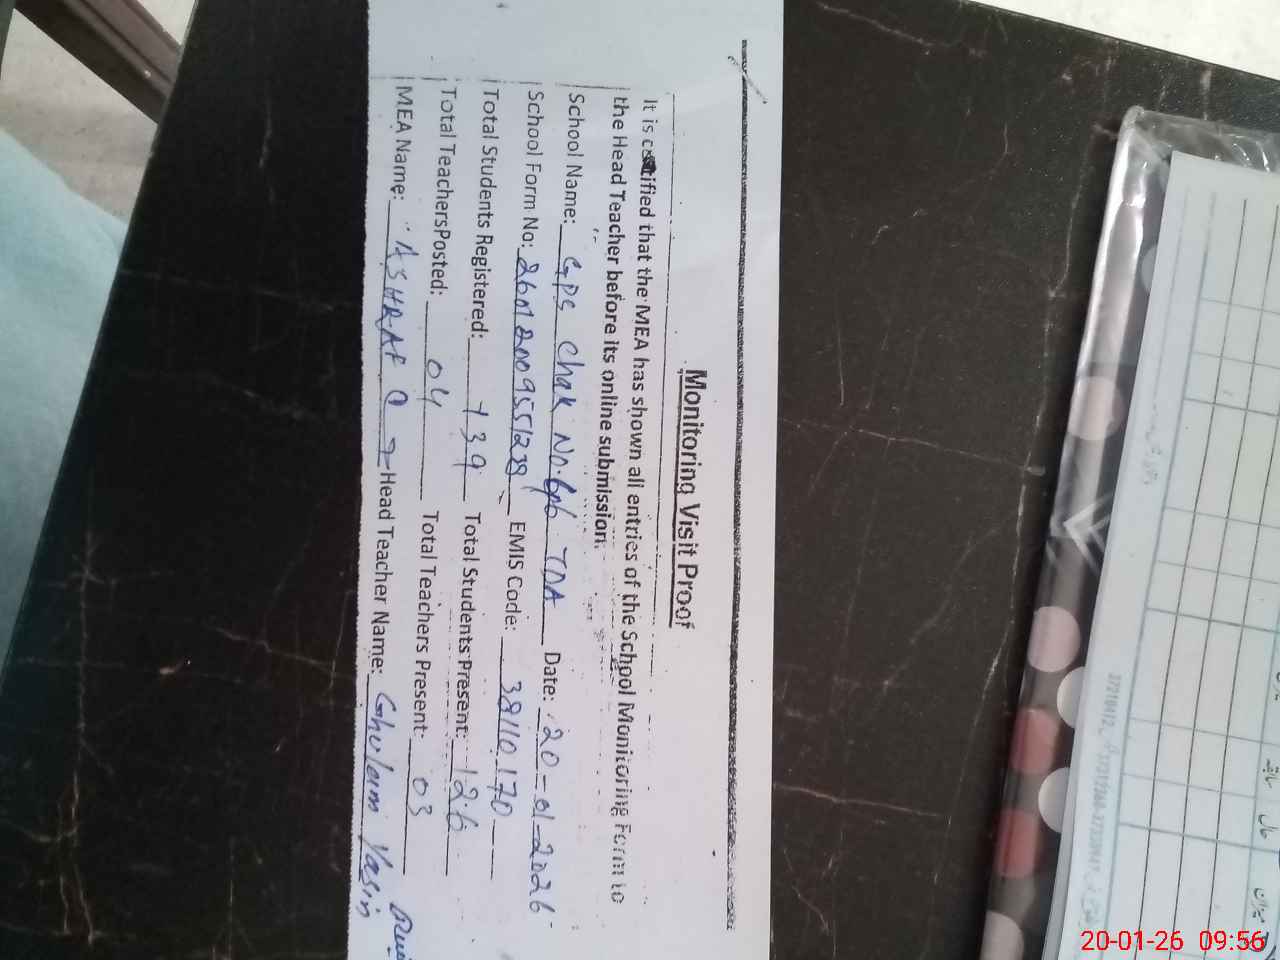 Monitoring Visit Proof
It is certified that the MEA has shown all entries of the School Monitoring Form to
the Head Teacher before its online submission.
School Name: GPS Chak No. 6p6 TDA Date: 20-01-2026
School Form No: 26M2009551238 EMIS Code: 38110170
Total Students Registered: 139 Total Students Present: 126
Total TeachersPosted: 04 Total Teachers Present: 03
MEA Name: ASHRAF Head Teacher Name: Ghulam Yasin
20-01-26 09:56